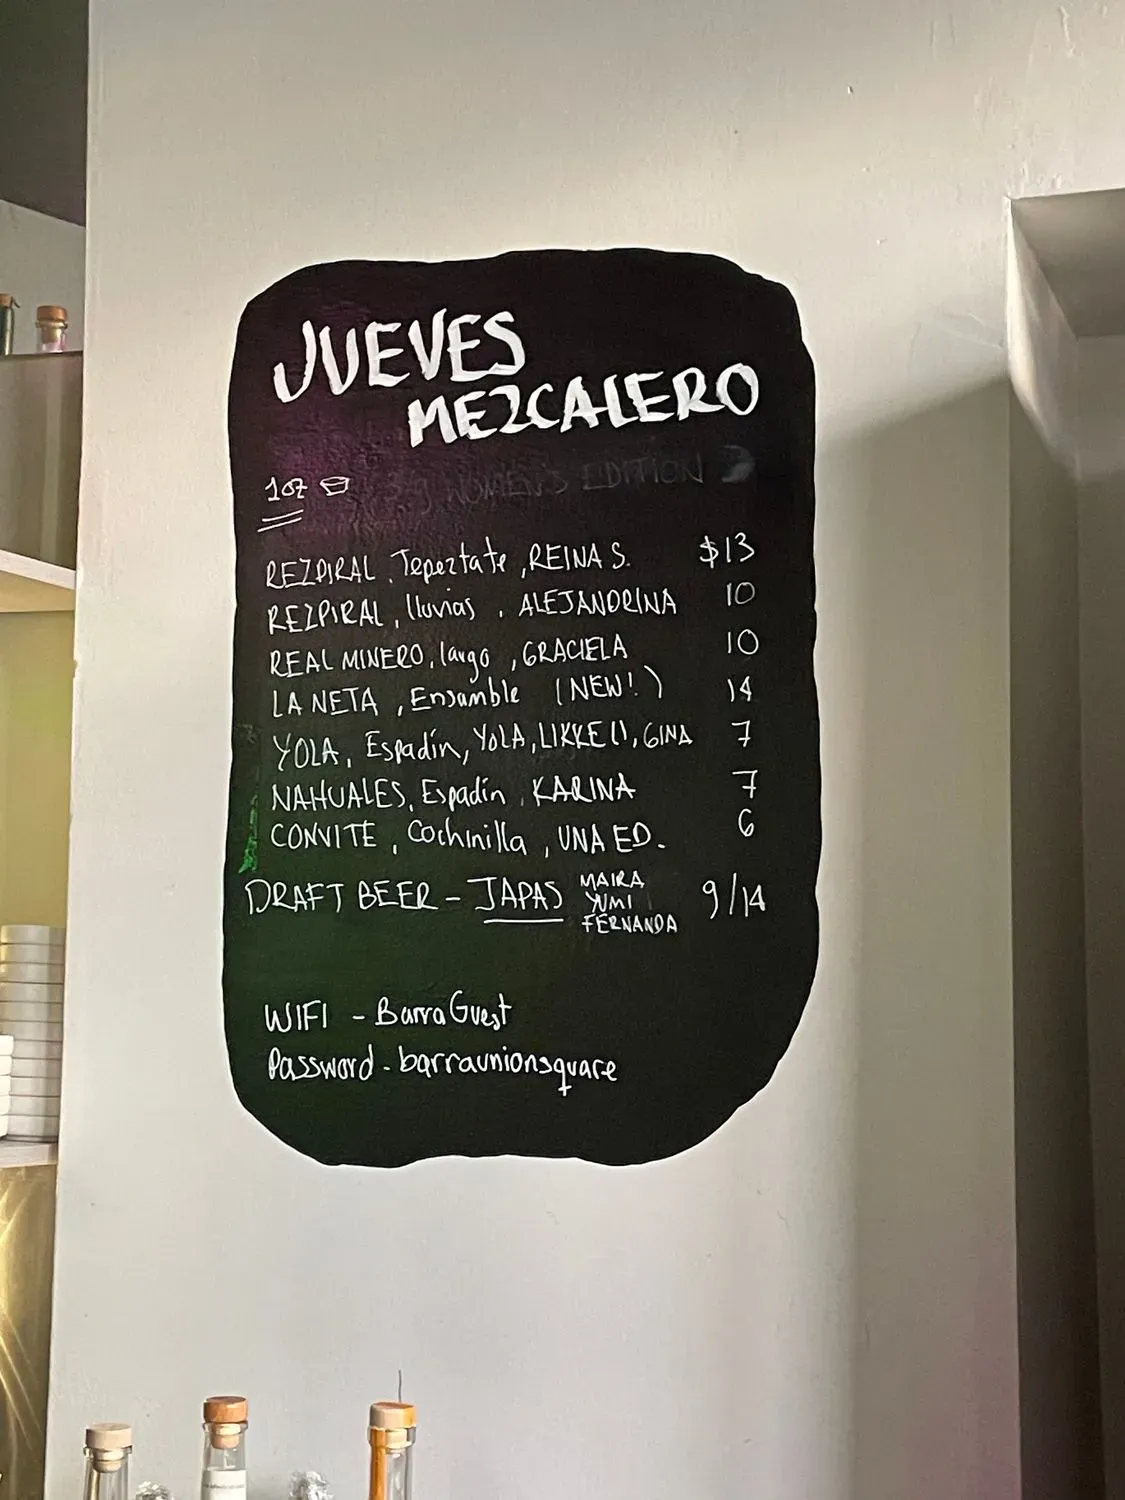 JUEVES
MEZCALERO
1oz WOMEN'S EDITION
REZPIRAL, Tepeztate, REINA S. $13
REZPIRAL, lluvias, ALEJANDRINA 10
REAL MINERO, largo, GRACIELA 10
LA NETA, Ensamble (NEW!) 14
YOLA, Espadín, YOLA, LIKKE(), GINA 7
NAHUALES, Espadín, KARINA 7
CONVITE, Cochinilla, UNA ED. 6
DRAFT BEER - JAPAS MAIRA 9/14
YUMI
FERNANDA
WIFI - BarraGuest
Password - barraunionsquare